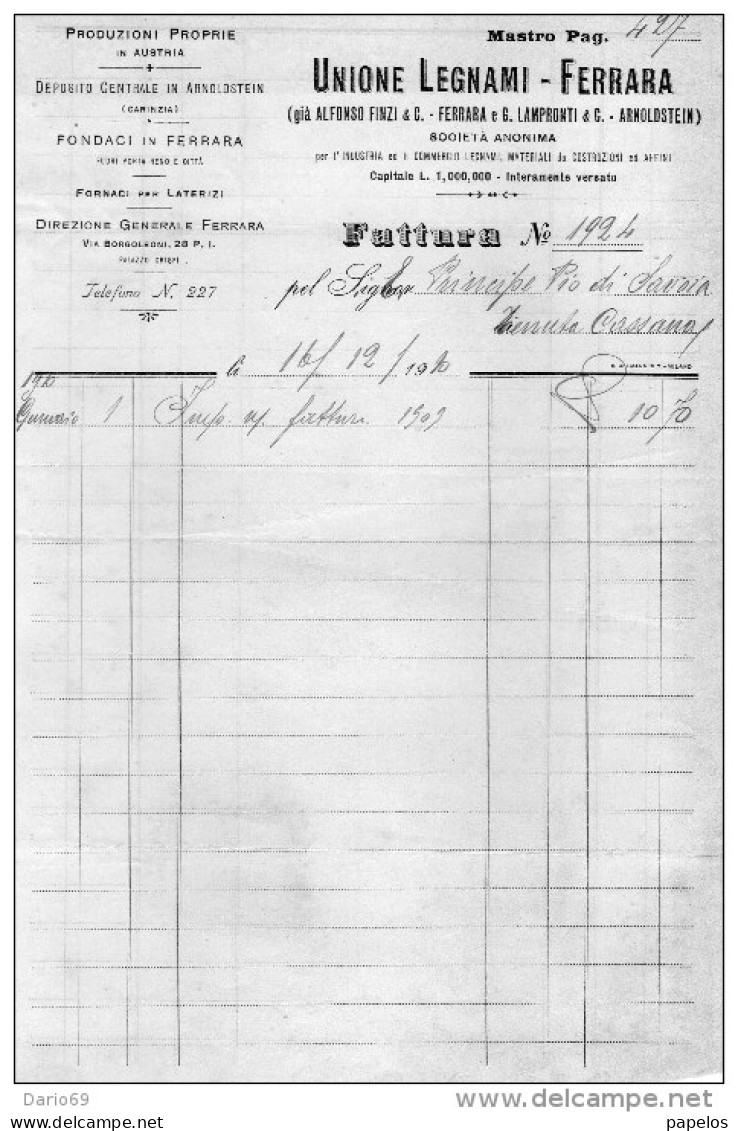 PRODUZIONI PROPRIE
IN AUSTRIA
DEPOSITO CENTRALE IN ARNOLDSTEIN
(CARINZIA)
FONDACI IN FERRARA
FUORI PORTA RENO E CITTÀ
FORNACI PER LATERIZI
DIREZIONE GENERALE FERRARA
VIA BORGOLEONI, 28 P. I.
PALAZZO CRISPI
Telefono N. 227
Mastro Pag. 427
UNIONE LEGNAMI - FERRARA
(già ALFONSO FINZI & C. - FERRARA e G. LAMPRONTI & C. - ARNOLDSTEIN)
SOCIETÀ ANONIMA
per l'INDUSTRIA ed il COMMERCIO LEGNAMI, MATERIALI da COSTRUZIONI ed AFFINI
Capitale L. 1,000,000 - Interamente versato
Fattura No 1924
pel Sig. Principe Pio di Savoia
Tenuta Cassana
li 16/12/1910
1910
Gennaio 1 Imp. n/. fatture 1909 10 70
Dario69
www.delcampe.net
papelos